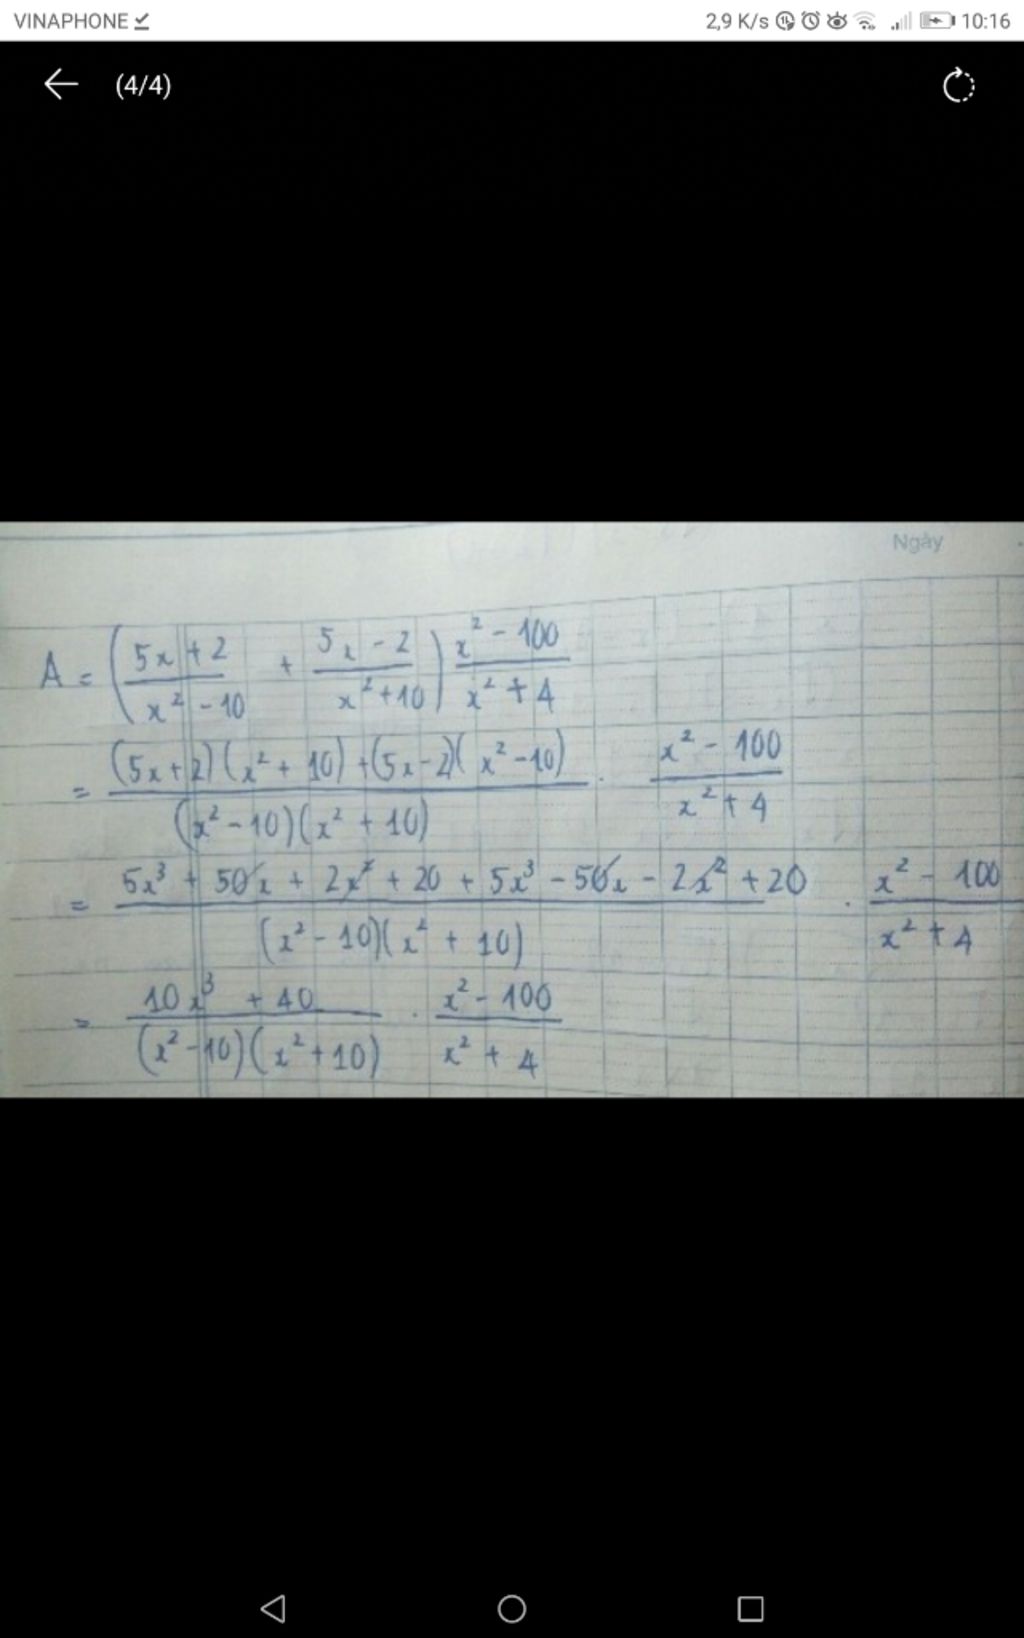 VINAPHONE 2,9 K/s 10:16
(4/4)
Ngày
A = ( (5x + 2)/(x² - 10) + (5x - 2)/(x² + 10) ) (x² - 100)/(x² + 4)
= ((5x + 2)(x² + 10) + (5x - 2)(x² - 10))/((x² - 10)(x² + 10)) . (x² - 100)/(x² + 4)
= (5x³ + 50x + 2x² + 20 + 5x³ - 50x - 2x² + 20)/((x² - 10)(x² + 10)) . (x² - 100)/(x² + 4)
= (10x³ + 40)/((x² - 10)(x² + 10)) . (x² - 100)/(x² + 4)